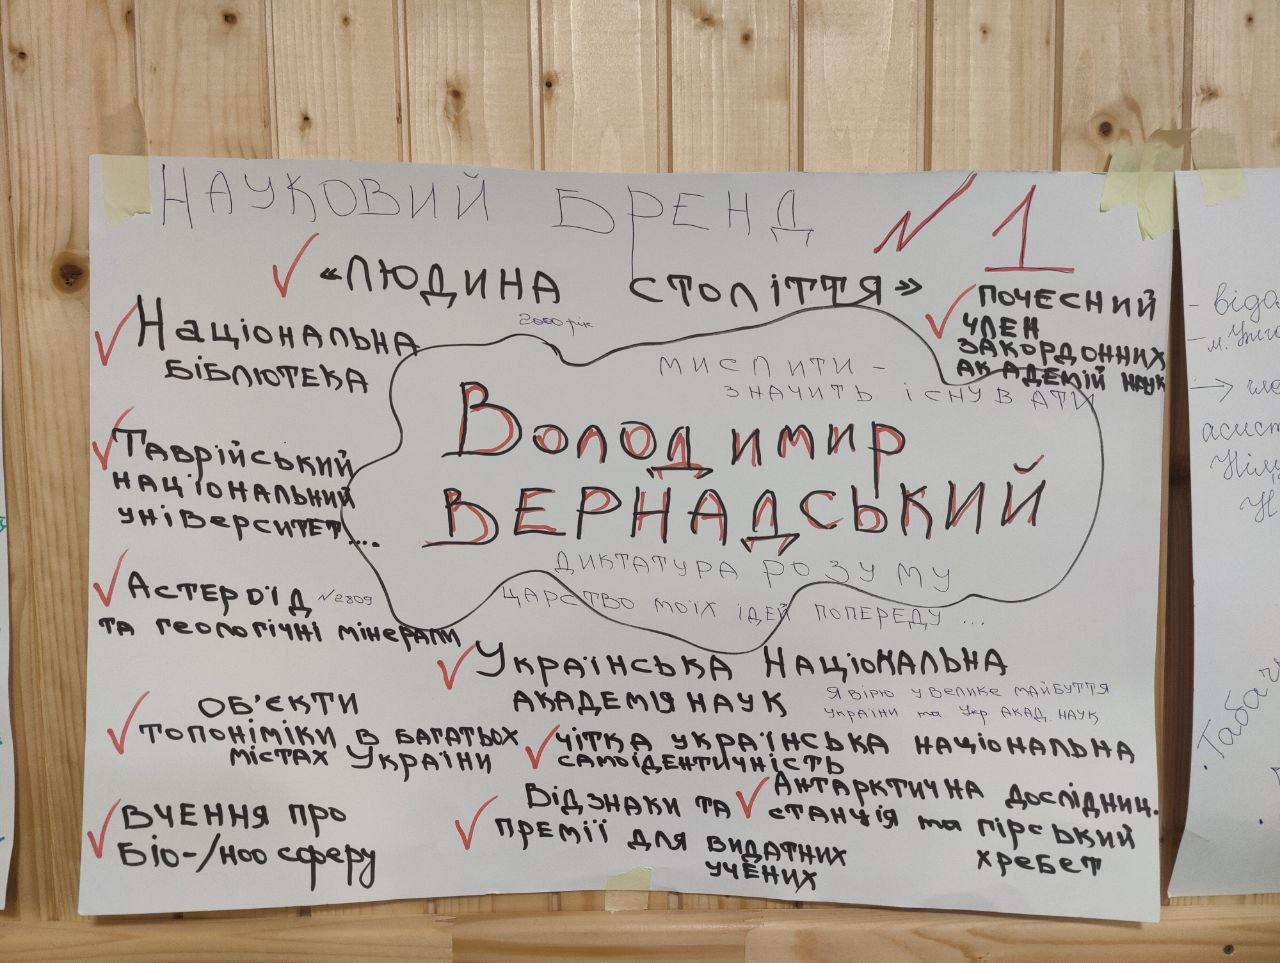 НАУКОВИЙ БРЕНД №1
«ЛЮДИНА СТОЛІТТЯ»
2000 рік
ПОЧЕСНИЙ
ЧЛЕН
ЗАКОРДОННИХ
АКАДЕМІЙ НАУК
НАЦІОНАЛЬНА
БІБЛІОТЕКА
МИСЛИТИ -
ЗНАЧИТЬ ІСНУВАТИ
ВОЛОДИМИР
ВЕРНАДСЬКИЙ
ДИКТАТУРА РОЗУМУ
ЦАРСТВО МОЇХ ІДЕЙ ПОПЕРЕДУ ...
ТАВРІЙСЬКИЙ
НАЦІОНАЛЬНИЙ
УНІВЕРСИТЕТ....
АСТЕРОЇД №2809
ТА ГЕОЛОГІЧНІ МІНЕРАЛИ
УКРАЇНСЬКА НАЦІОНАЛЬНА
АКАДЕМІЯ НАУК
Я ВІРЮ У ВЕЛИКЕ МАЙБУТТЯ
УКРАЇНИ та Укр АКАД. НАУК
ОБ'ЄКТИ
ТОПОНІМІКИ В БАГАТЬОХ
МІСТАХ УКРАЇНИ
ЧІТКА УКРАЇНСЬКА НАЦІОНАЛЬНА
САМОІДЕНТИЧНІСТЬ
ВЧЕННЯ ПРО
БІО-/НООСФЕРУ
ВІДЗНАКИ ТА
ПРЕМІЇ ДЛЯ ВИДАТНИХ
УЧЕНИХ
АНТАРКТИЧНА ДОСЛІДНИЦ.
СТАНЦІЯ та ГІРСЬКИЙ
ХРЕБЕТ